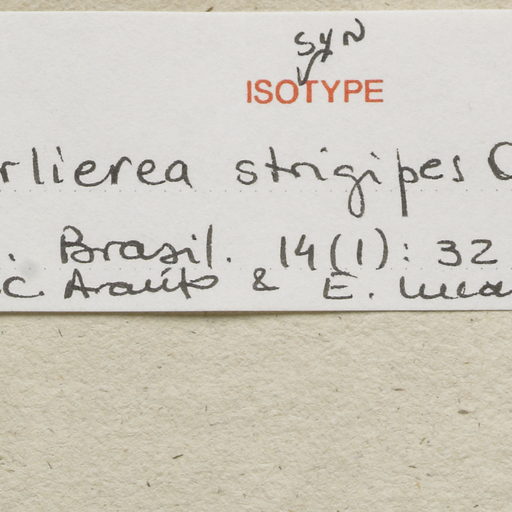 SYN
ISOTYPE
rlierea strigipes
. Brasil. 14(1): 32
C. Araújo & E. Luca